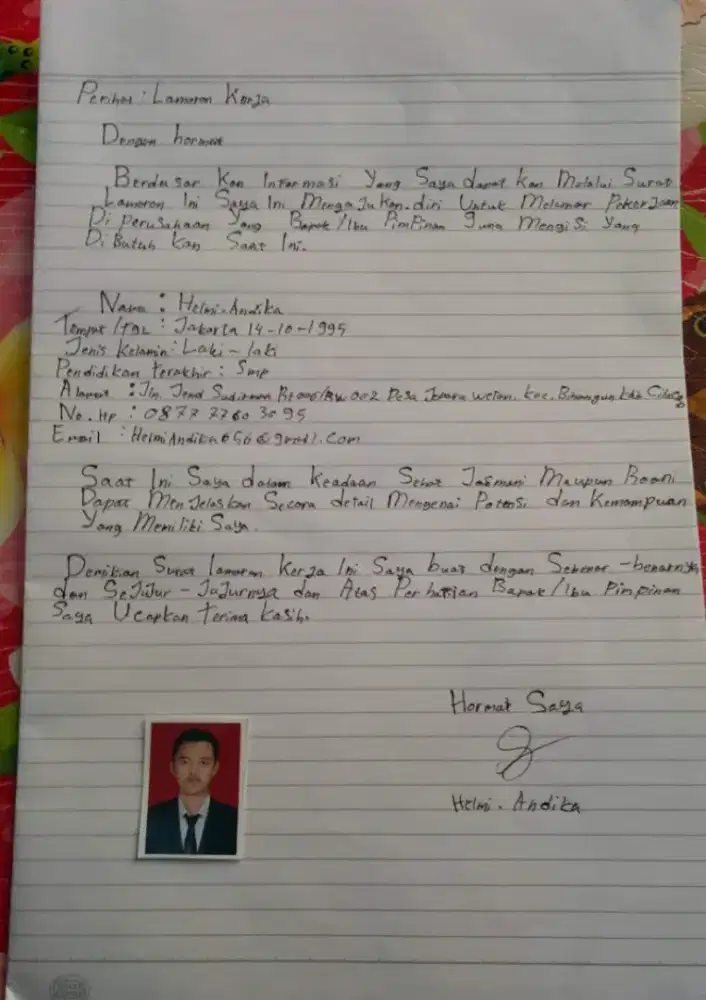 Perihal : Lamaran Kerja
Dengan hormat
Berdasar kan Informasi Yang Saya dapat kan Melalui Surat
Lamaran Ini Saya Ini Mengaju kan.diri Untuk Melamar Pekerjaan
Di perusahaan Yang Bapak/Ibu Pimpinan guna Mengisi Yang
Di Butuh kan Saat Ini.
Nama : Helmi.Andika
Tempat/TGL : Jakarta 14-10-1995
Jenis Kelamin : Laki-laki
Pendidikan terakhir : Smp
Alamat : Jln. Jend Sudirman 002 Desa wetan. kec.
No. Hp : 0877 7760 3095
Email : HelmiAndika656@gmail.com
Saat Ini Saya dalam Keadaan Sehat Jasmani Maupun Roani
Dapat Menjelaskan Secara detail Mengenai Potensi dan Kemampuan
Yang Memiliki Saya.
Demikian Surat lamaran kerja Ini Saya buat dengan Sebenar-benarnya
dan SeJUJur-JuJurnya dan Atas Perhatian Bapak/Ibu Pimpinan
Saya Ucapkan terima kasih.
Hormat Saya
Helmi. Andika